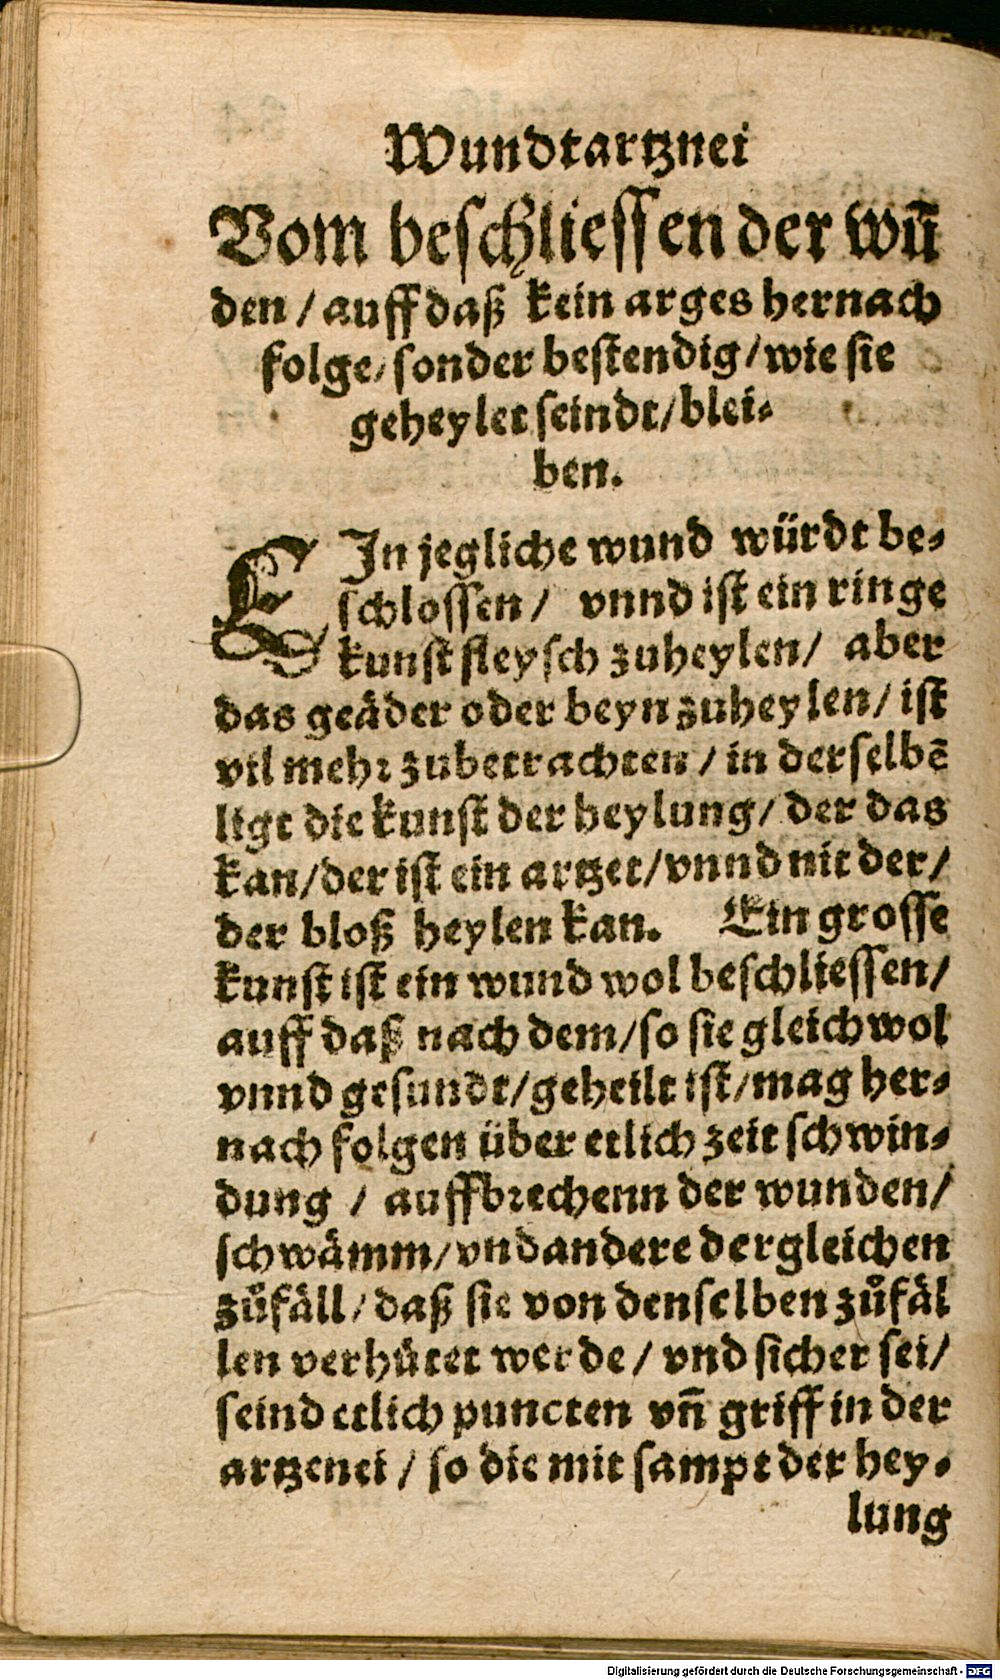 Wundtartznei
Vom beschliessen der wū
den / auff daß kein arges hernach
folge / sonder bestendig / wie sie
geheylet seindt / blei⸗
ben.
EIn jegliche wund würdt be⸗
schlossen / vnnd ist ein ringe
kunst fleysch zuheylen / aber
das geäder oder beyn zuheylen / ist
vil mehr zubetrachten / in derselbē
ligt die kunst der heylung / der das
kan / der ist ein artzet / vnnd nit der /
der bloß heylen kan. Ein grosse
kunst ist ein wund wol beschliessen /
auff daß nach dem / so sie gleich wol
vnnd gesundt / geheilt ist / mag her⸗
nach folgen über etlich zeit schwin⸗
dung / auffbrechenn der wunden /
schwämm / vnd andere dergleichen
zůfäll / daß sie von denselben zůfäl
len verhütet werde / vnd sicher sei /
seind etlich puncten vn̄ griff in der
artzenei / so die mit sampt der hey⸗
lung
Digitalisierung gefördert durch die Deutsche Forschungsgemeinschaft - DFG